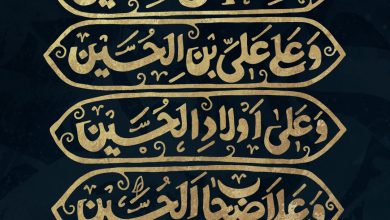 الحُسَيْن
وَعَلىٰ عَلِيِّ بْنِ الحُسَيْن
وَعَلىٰ اَوْلادِ الحُسَيْن
وَعَلىٰ اَصْحابِ الحُسَيْن